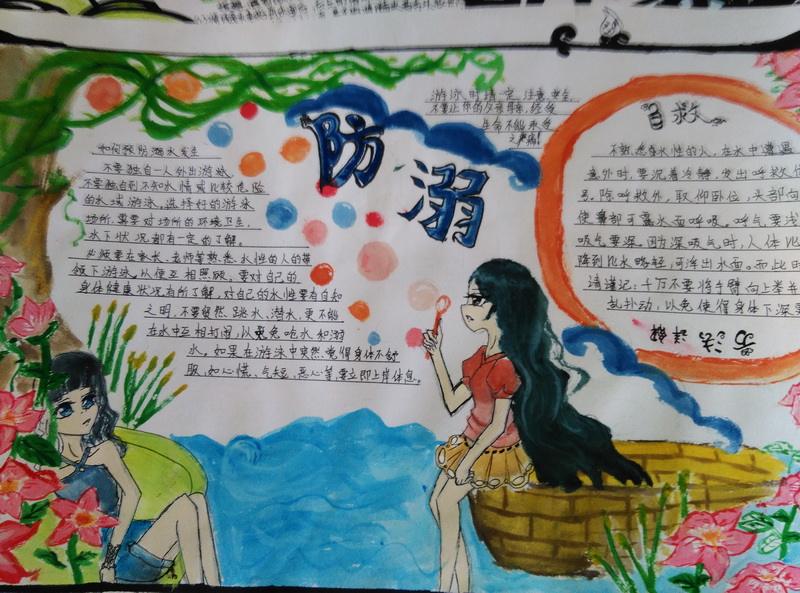 防溺
游泳时请一定注意安全
不要让你的父母用余经受
生命不能承受
之严痛!
如何预防溺水发生
不要独自一人外出游泳,
不要独自到不知水情或比较危险
的水域游泳。选择好的游泳
场所,需要对场所的环境卫生,
水下状况都有一定的了解。
必须要在家长、老师等熟悉水性的人的带
领下游泳。以便互相照顾,要对自己的
身体健康状况有所了解,对自己的水性要有自知
之明,不要贸然跳水、潜水,更不能
在水中互相打闹,以免呛水和溺
水。如果在游泳中突然觉得身体不舒
服,如心慌、气短、恶心等,要立即上岸休息。
自救
不熟悉水性的人,在水中遭遇
意外时,要沉着冷静,发出呼救信
号。除呼救外,取仰卧位,头部向
使鼻部可露水面呼吸。呼气要浅
吸气要深。因为深吸气时,人体比
降到比水略轻,可浮出水面。而此时
请谨记:千万不要将手臂向上举并
乱扑动,以免使得身体下沉更